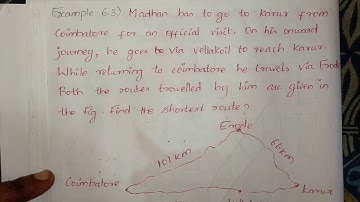 Example 6.3) Madhan has to go to karur from
Coimbatore for an official visit. On his onward
journey, he goes to via vellakoil to reach Karur.
While returning to coimbatore he travels via Erode
Both the routes travelled by him are given in
the fig Find the shortest route?
Erode
101 km
66 km
Coimbatore
karur